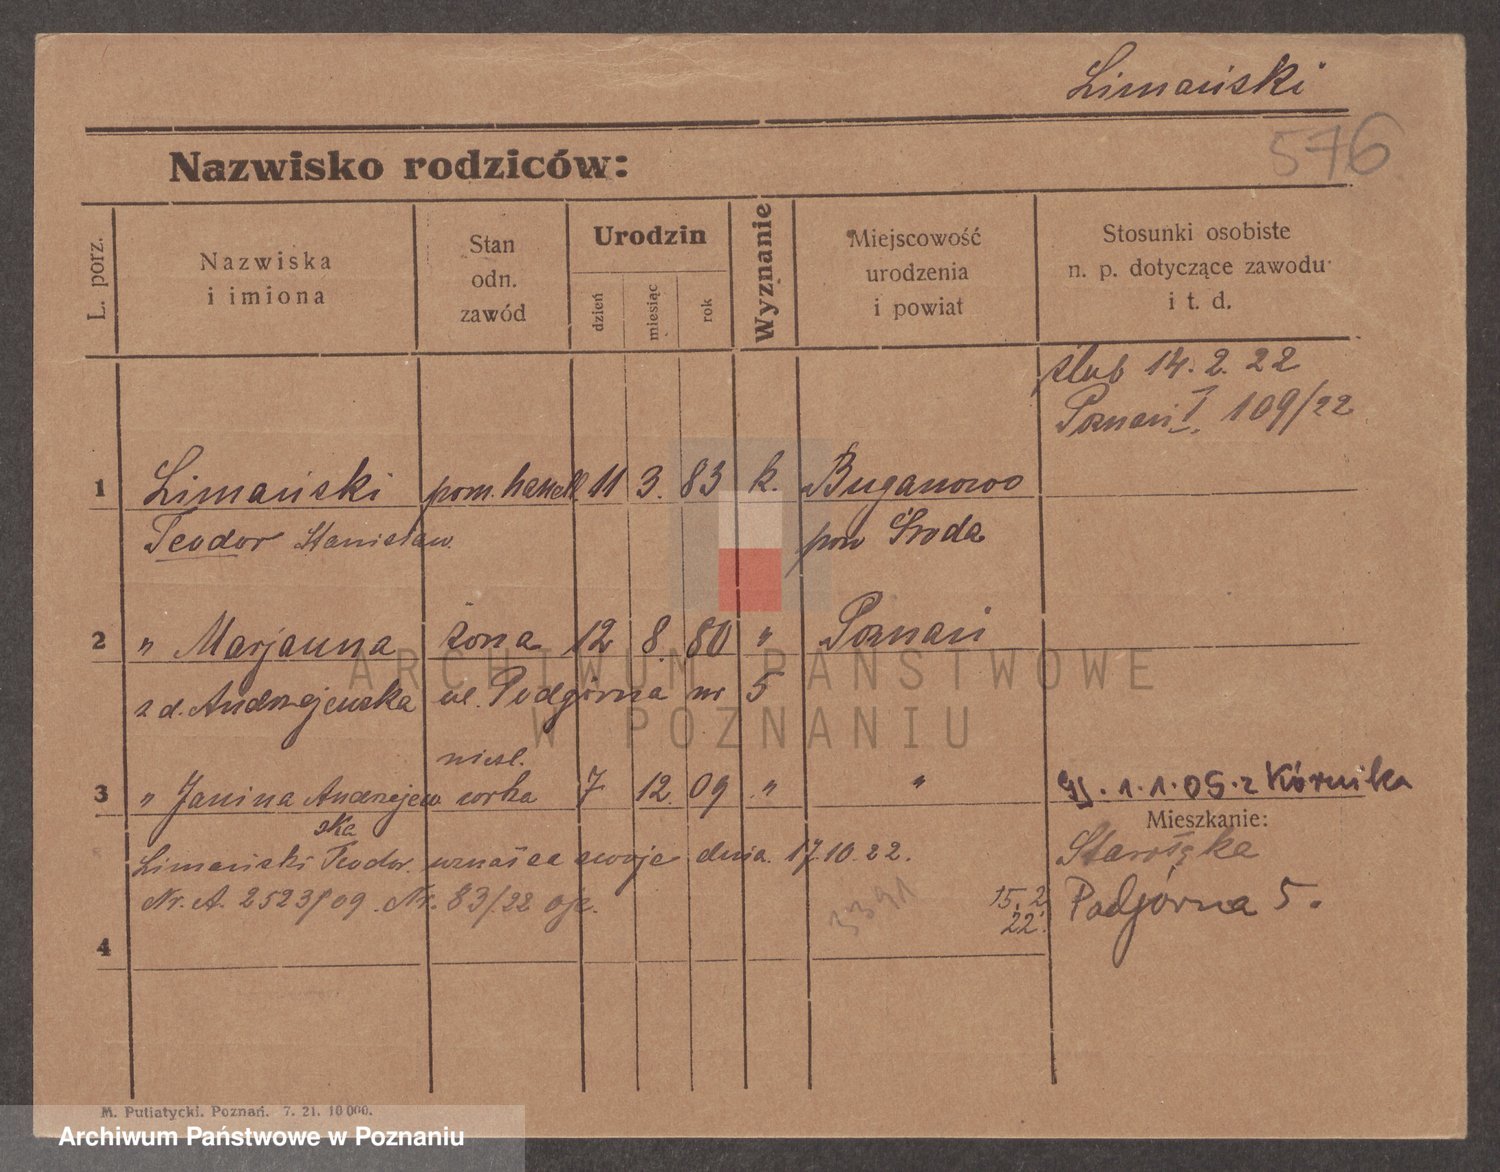 Limański
576
Nazwisko rodziców:
L. porz.
Nazwiska
i imiona
Stan
odn.
zawód
Urodzin
dzień
miesiąc
rok
Wyznanie
Miejscowość
urodzenia
i powiat
Stosunki osobiste
n. p. dotyczące zawodu
i t. d.
ślub 14. 2. 22
Poznań I. 109/22
1 Limański pom. handl. 11 3. 83 k. Buganowo
Teodor Stanisław pow Środa
2 " Marjanna żona 12 8. 80 " Poznań
z d. Andrzejewska ul. Podgórna nr 5
niesl.
3 " Janina Andrzejew córka 7 12. 09 " " 1.1.05. z Kórnika
ska
Mieszkanie:
Limański Teodor. uznał za swoje dnia. 17.10.22.
Starołęka
Nr. A. 2523/09. Nr. 83/22
3391
15. 2
22.
Podgórna 5.
4
ARCHIWUM PAŃSTWOWE
W POZNANIU
M. Putiatycki. Poznań. 7. 21. 10000.
Archiwum Państwowe w Poznaniu